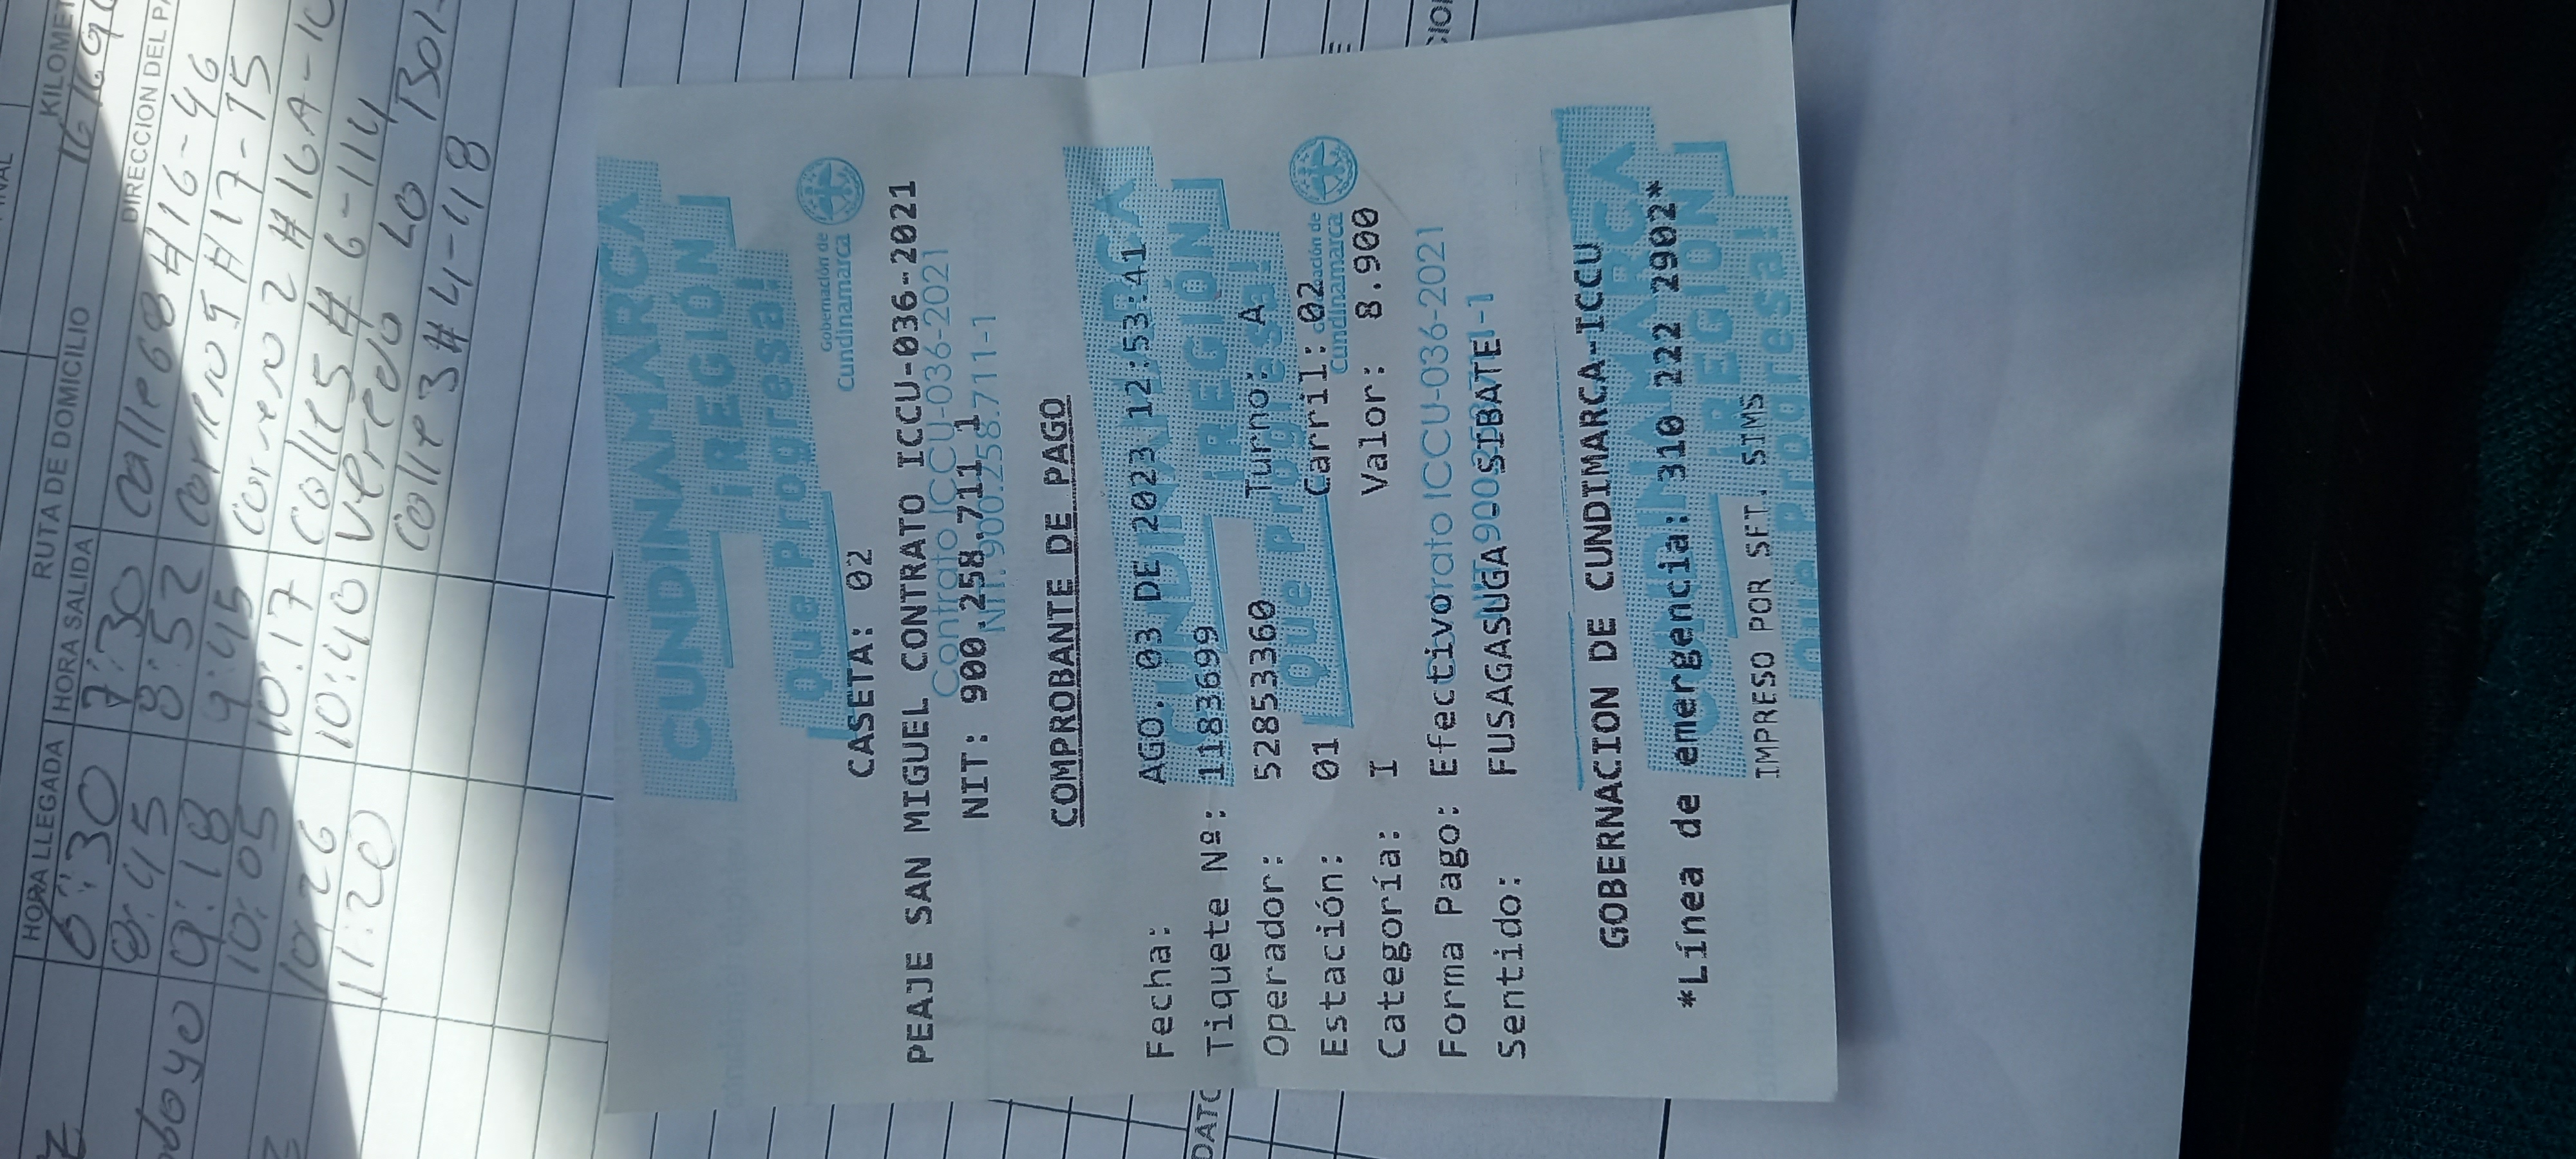 KILOMET
RUTA DE DOMICILIO
HORA LLEGADA HORA SALIDA DIRECCION DEL PA
6:30 7:30 calle 6B #16-46
8:45 8:52 #17-75
9:18 9:45 #16A-10
10:05 10:17 calle 5 # 6-114
10:26 10:40 vereda LO
11:20 calle 3 # 4-48
CUNDINAMARCA
¡REGIÓN
Que Progresa!
Gobernación de
Cundinamarca
CASETA: 02
PEAJE SAN MIGUEL CONTRATO ICCU-036-2021
Contrato ICCU-036-2021
NIT: 900.258.711 1
NIT. 900.258.711-1
COMPROBANTE DE PAGO
CUNDINAMARCA
¡REGIÓN
Que Progresa!
Gobernación de
Cundinamarca
Fecha: AGO. 03 DE 2023 12:53:41
Tiquete Nº: 11836999
Operador: 528533360 Turno: A
Estación: 01 Carril: 02
Categoría: I Valor: 8.900
Forma Pago: Efectivo
Contrato ICCU-036-2021
Sentido: FUSAGASUGA SIBATE
GOBERNACION DE CUNDIMARCA-ICCU
CUNDINAMARCA
¡REGIÓN
Que Progresa!
*Línea de emergencia: 310 222 2902*
IMPRESO POR SFT. SIMS